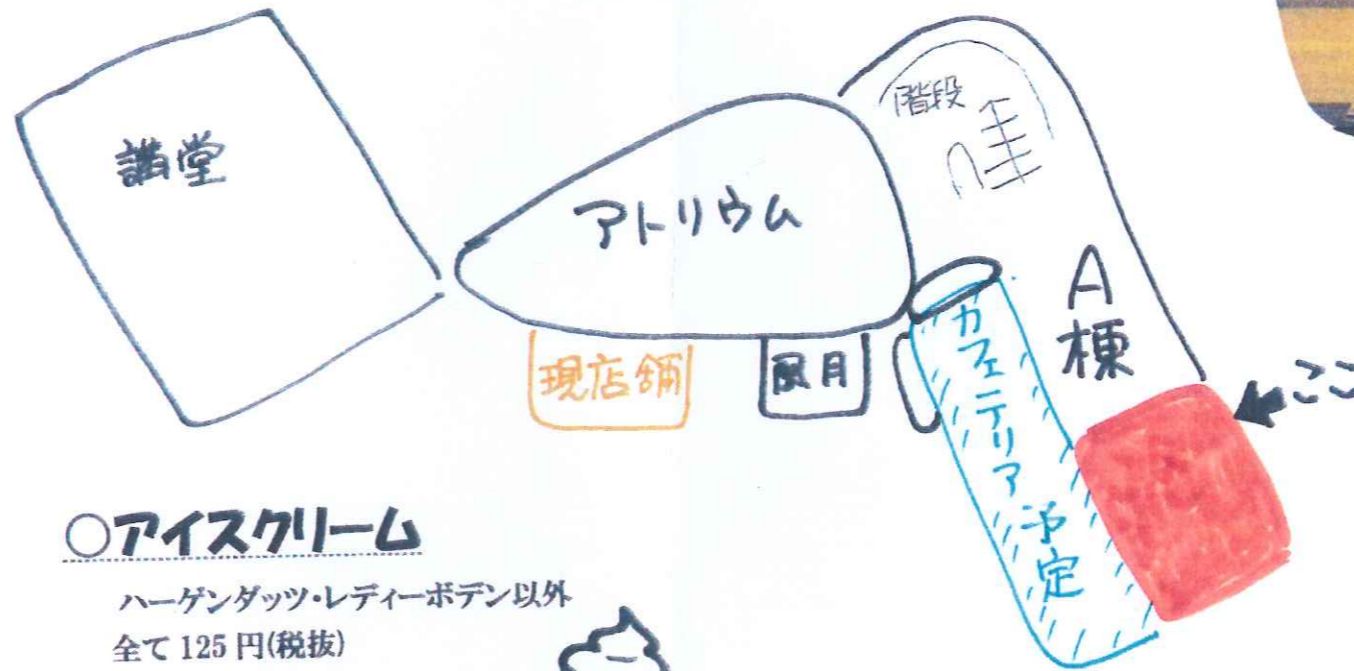 講堂
アトリウム
階段
A棟
現店舗
風月
カフェテリア予定
ここ
○アイスクリーム
ハーゲンダッツ・レディーボデン以外
全て125円(税抜)